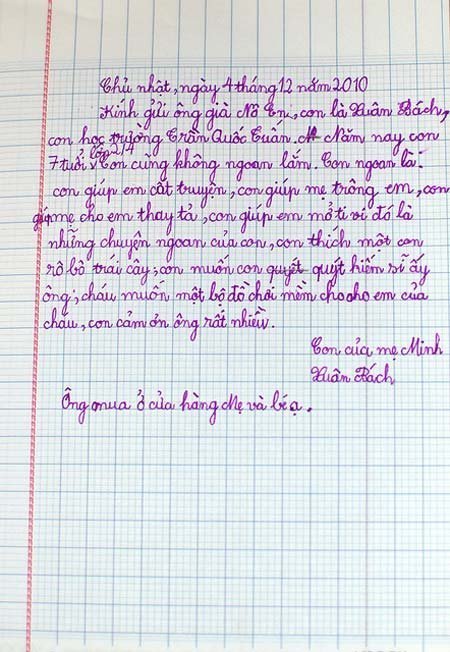 Chủ nhật, ngày 4 tháng 12 năm 2010
Kính gửi ông già Nô En, con là Xuân Bách,
con học trường Trần Quốc Tuấn. Năm nay con
7 tuổi lớp 2/4 Con cũng không ngoan lắm. Con ngoan là:
con giúp em cất truyện, con giúp mẹ trông em, con
giúp mẹ cho em thay tả, con giúp em mở ti vi đó là
những chuyện ngoan của con, con thích một con
rô bô trái cây, con muốn con quyết quýt hiếm sĩ ấy
ông; cháu muốn một bộ đồ chơi mềm cho cho em của
cháu, con cảm ơn ông rất nhiều.
Con của mẹ Minh
Xuân Bách
Ông mua ở của hàng Mẹ và bé ạ.